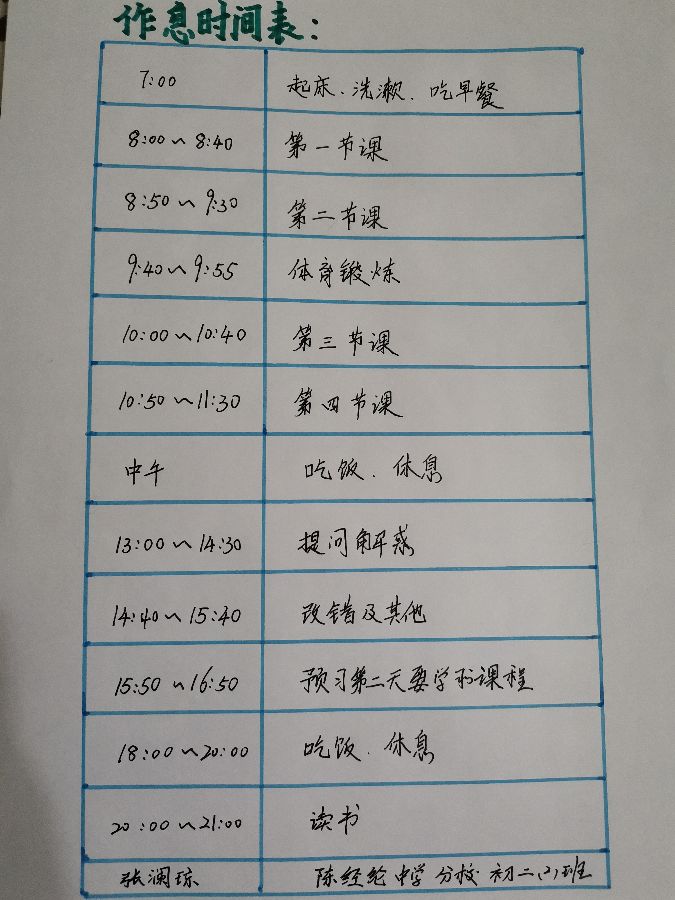 作息时间表：
7:00 起床、洗漱、吃早餐
8:00~8:40 第一节课
8:50~9:30 第二节课
9:40~9:55 体育锻炼
10:00~10:40 第三节课
10:50~11:30 第四节课
中午 吃饭、休息
13:00~14:30 提问解惑
14:40~15:40 改错及其他
15:50~16:50 预习第二天要学的课程
18:00~20:00 吃饭、休息
20:00~21:00 读书
张澜琼 陈经纶中学分校 初二(2)班